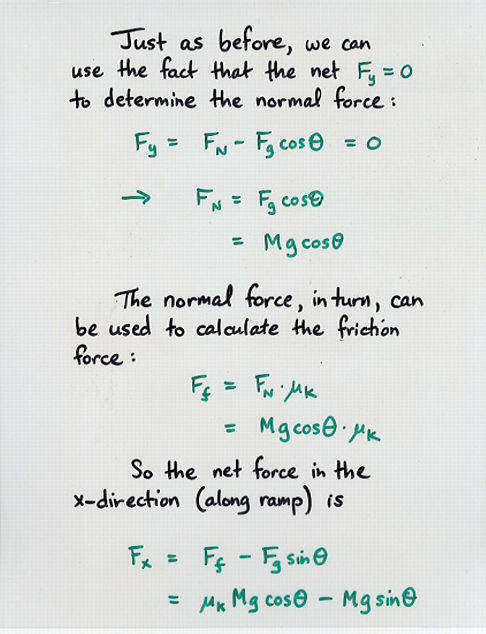 Just as before, we can
use the fact that the net Fy = 0
to determine the normal force :
Fy = FN - Fg cosθ = 0
→ FN = Fg cosθ
= Mg cosθ
The normal force, in turn, can
be used to calculate the friction
force :
Ff = FN · μK
= Mg cosθ · μK
So the net force in the
x-direction (along ramp) is
Fx = Ff - Fg sinθ
= μK Mg cosθ - Mg sinθ